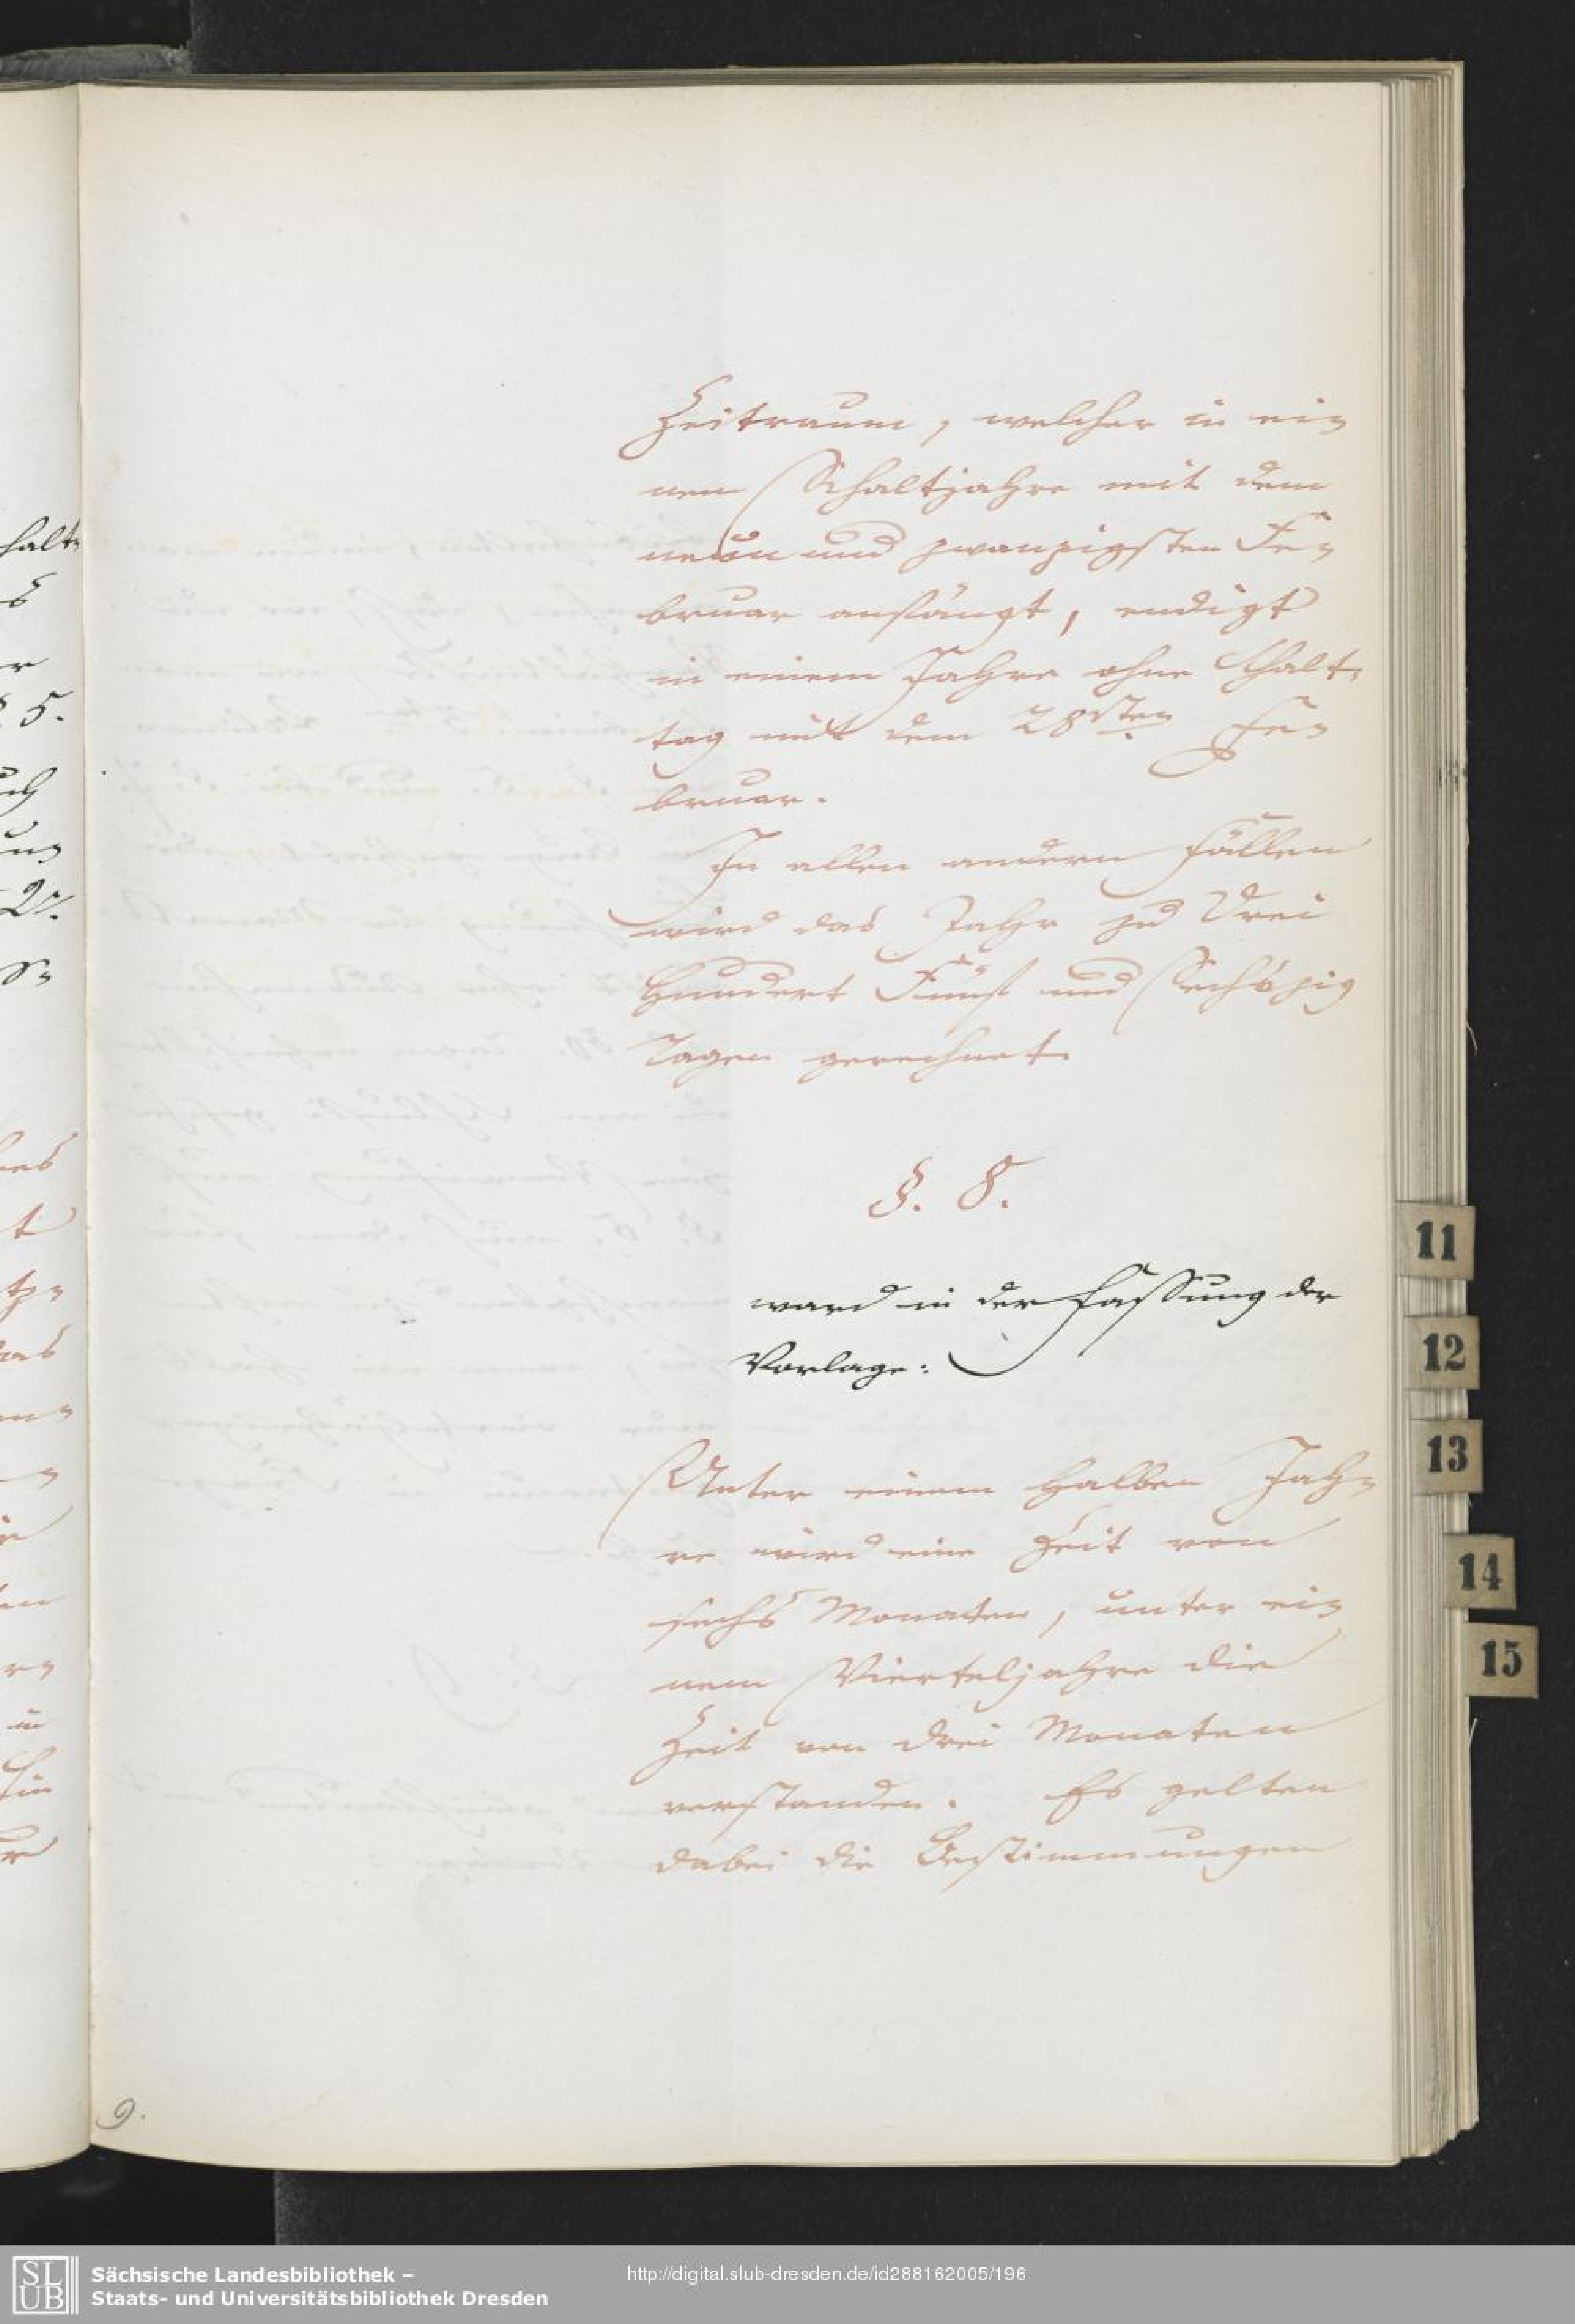 Zeitraum, welcher in ei-
nem Schaltjahre mit dem
neun und zwanzigsten Fe-
bruar anfängt, endigt
in einem Jahre ohne Schalt-
tag mit dem 28sten Fe-
bruar.
In allen andern Fällen
wird das Jahr zu Drei
Hundert Fünf und Sechszig
Tagen gerechnet.
§. 8.
ward in der Fassung der
Vorlage:
Unter einem halben Jah-
re wird eine Zeit von
sechs Monaten, unter ei-
nem Vierteljahre die
Zeit von drei Monaten
verstanden. Es gelten
dabei die Bestimmungen
9.
11
12
13
14
15
SLUB
Sächsische Landesbibliothek –
Staats- und Universitätsbibliothek Dresden
http://digital.slub-dresden.de/id288162005/196